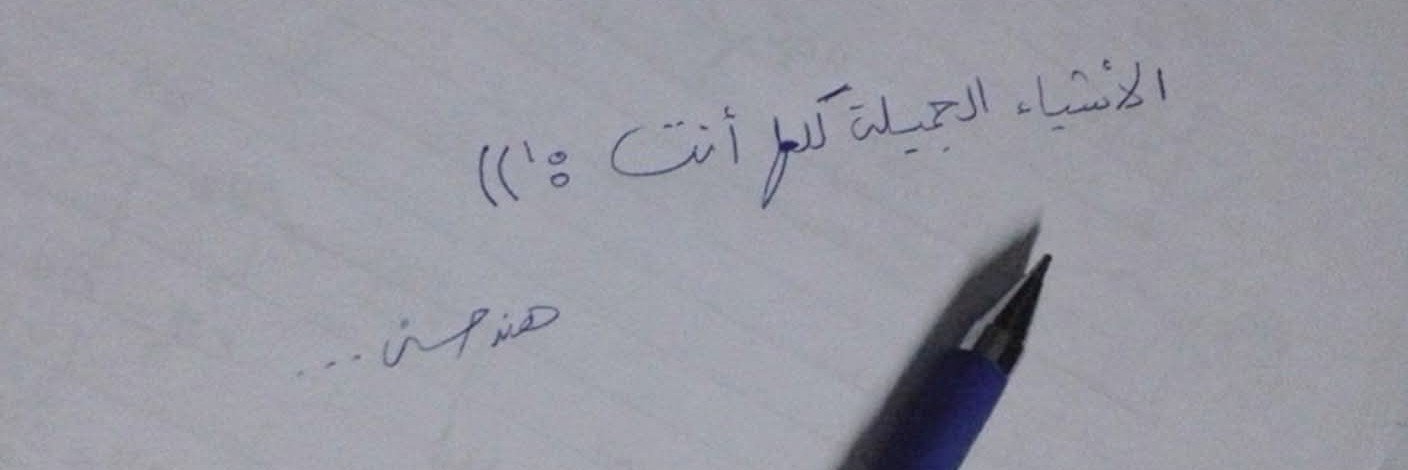 الأشياء الجميلة كلها أنت :'))
هند حسن ...